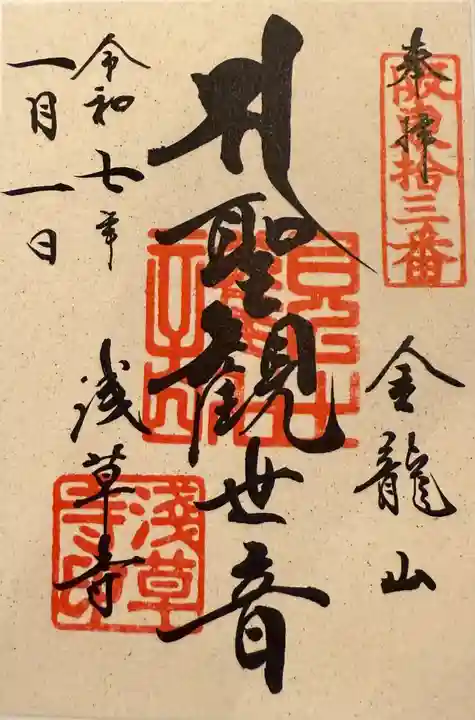 奉拝
阪東拾三番
金龍山
聖観世音
浅草寺
淺草寺印
令和七年
一月一日